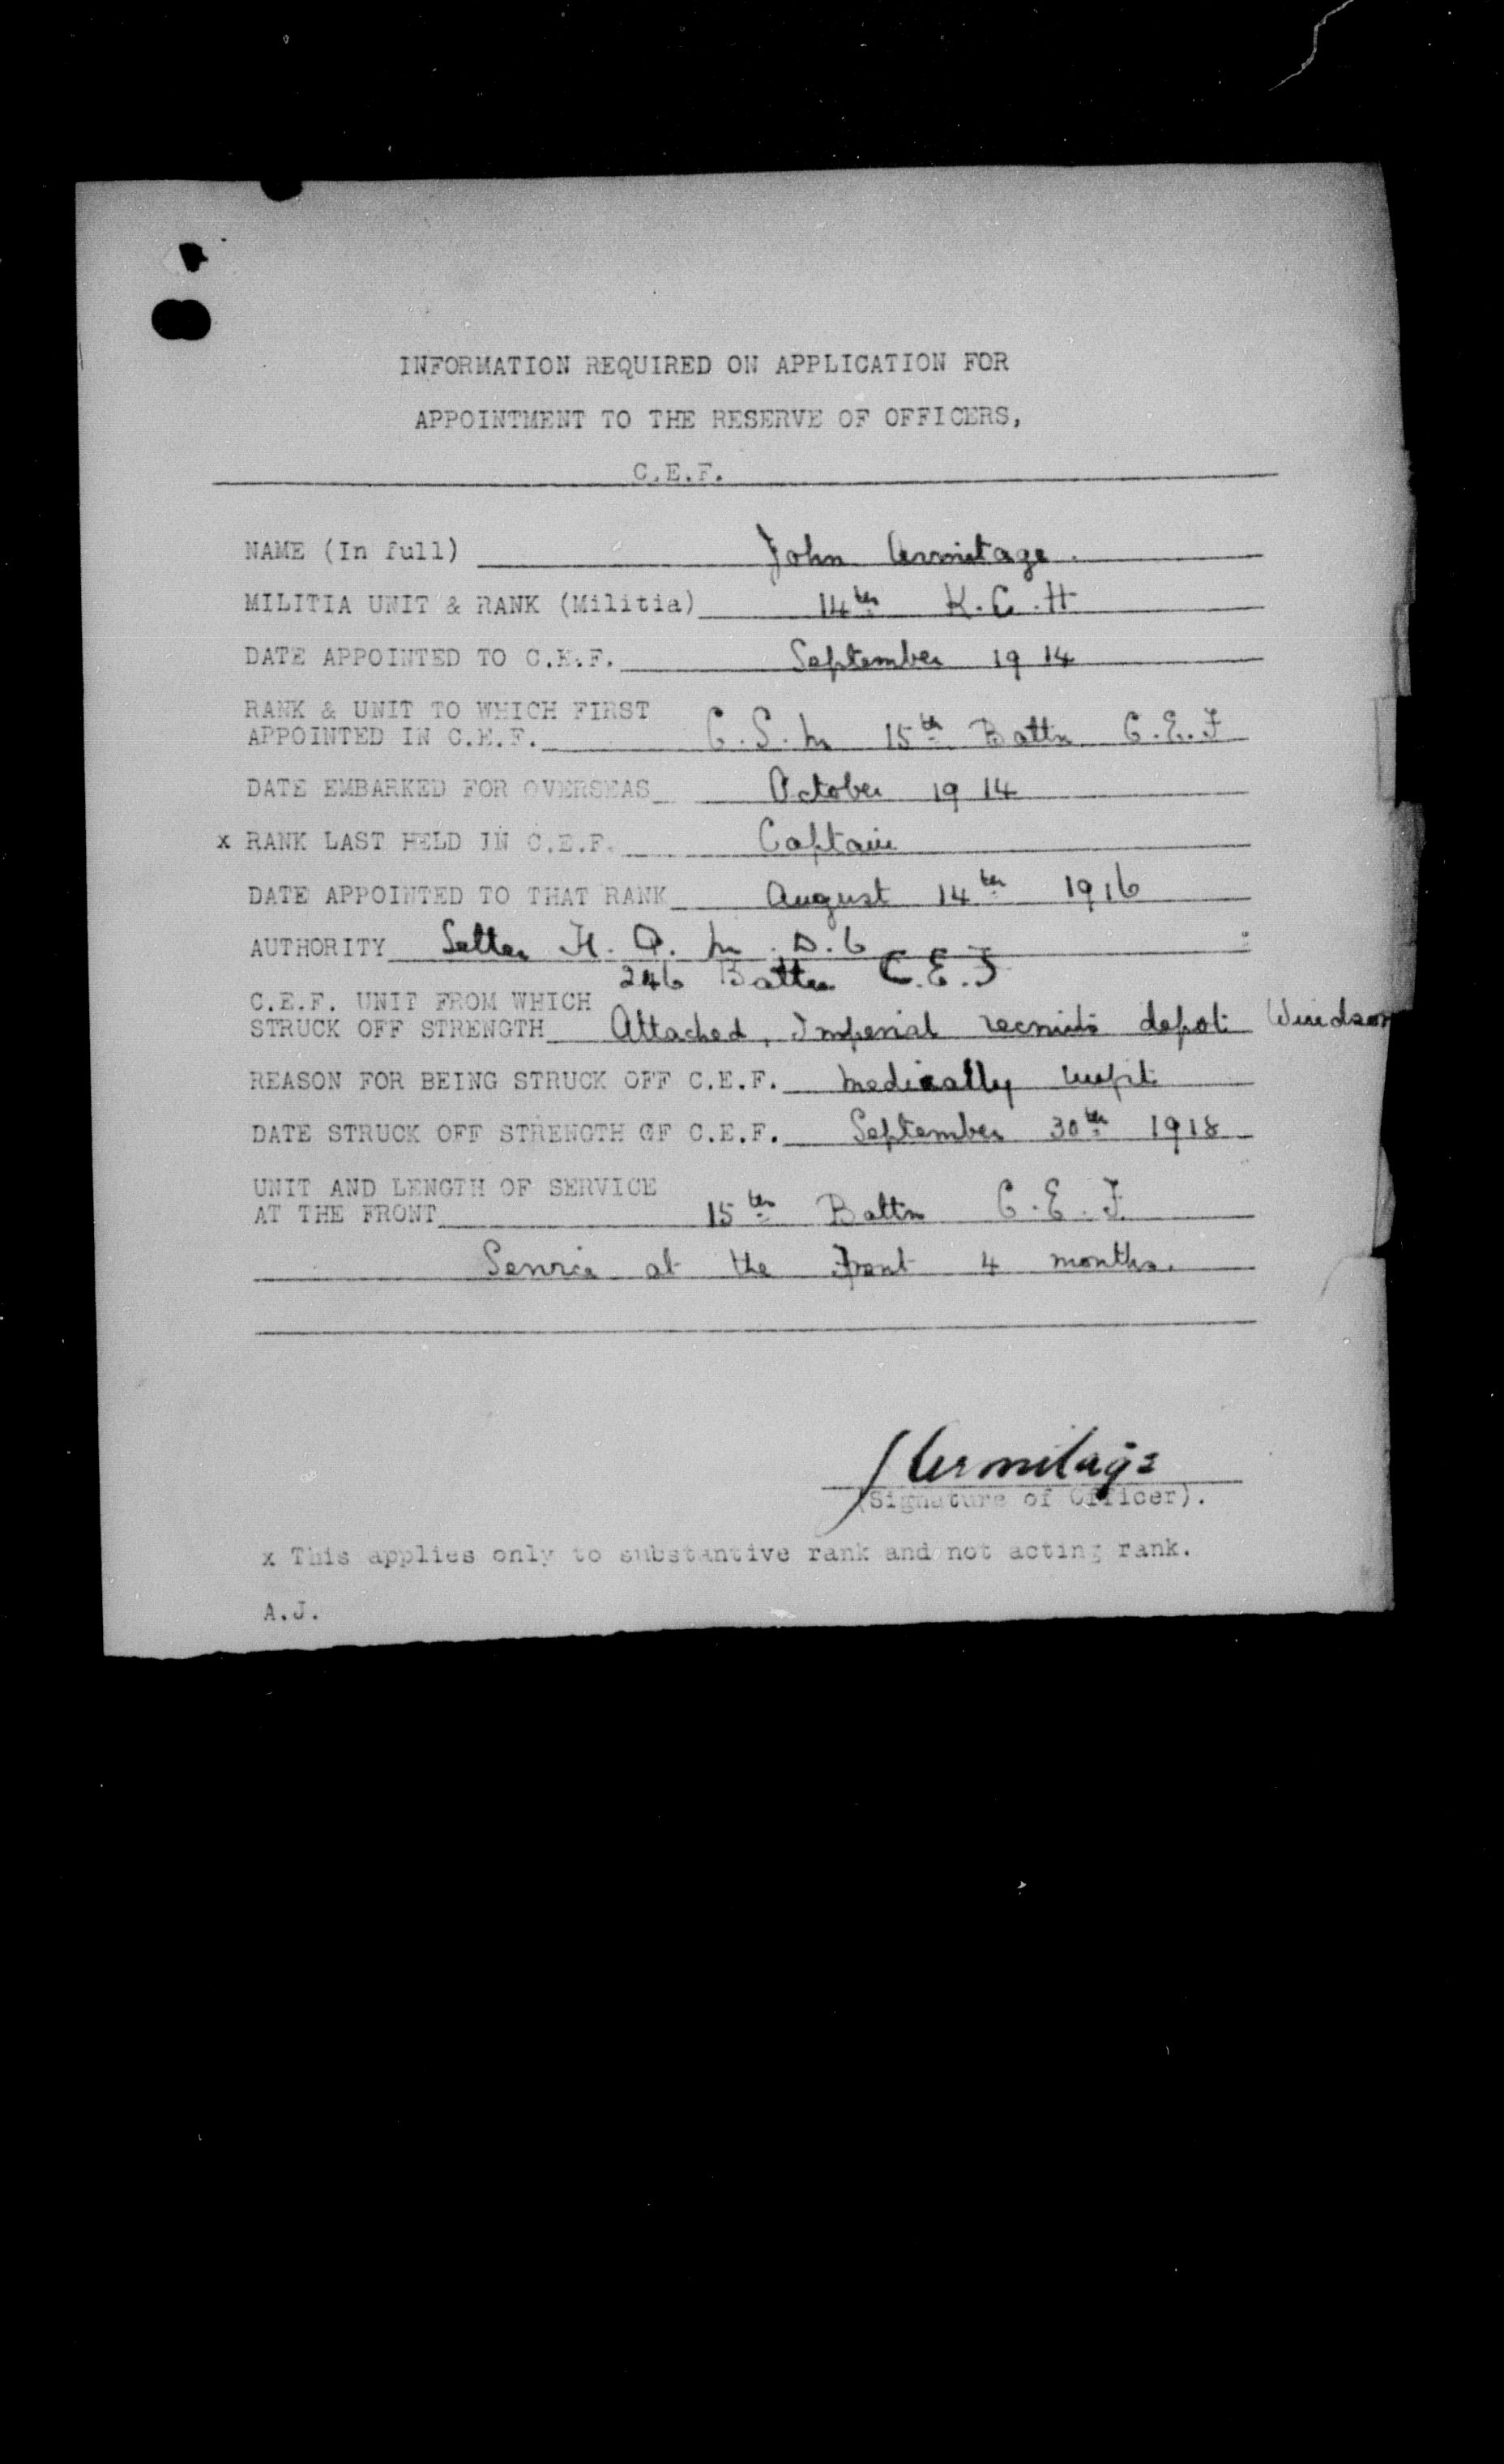 INFORMATION REQUIRED ON APPLICATION FOR
APPOINTMENT TO THE RESERVE OF OFFICERS,
C.E.F.
NAME (In full) John Armitage.
MILITIA UNIT & RANK (Militia) 14th K.C.H
DATE APPOINTED TO C.E.F. September 1914
RANK & UNIT TO WHICH FIRST
APPOINTED IN C.E.F. C.S.M 15th Battn C.E.F
DATE EMBARKED FOR OVERSEAS October 1914
x RANK LAST HELD IN C.E.F. Captain
DATE APPOINTED TO THAT RANK August 14th 1916
AUTHORITY Letter H.Q. M.D.6
246 Battn C.E.F
C.E.F. UNIT FROM WHICH
STRUCK OFF STRENGTH Attached, Imperial recruits depot Windsor
REASON FOR BEING STRUCK OFF C.E.F. Medically unfit
DATE STRUCK OFF STRENGTH OF C.E.F. September 30th 1918
UNIT AND LENGTH OF SERVICE
AT THE FRONT 15th Battn C.E.F.
Service at the Front 4 months.
J Armitage
(Signature of Officer).
x This applies only to substantive rank and not acting rank.
A.J.